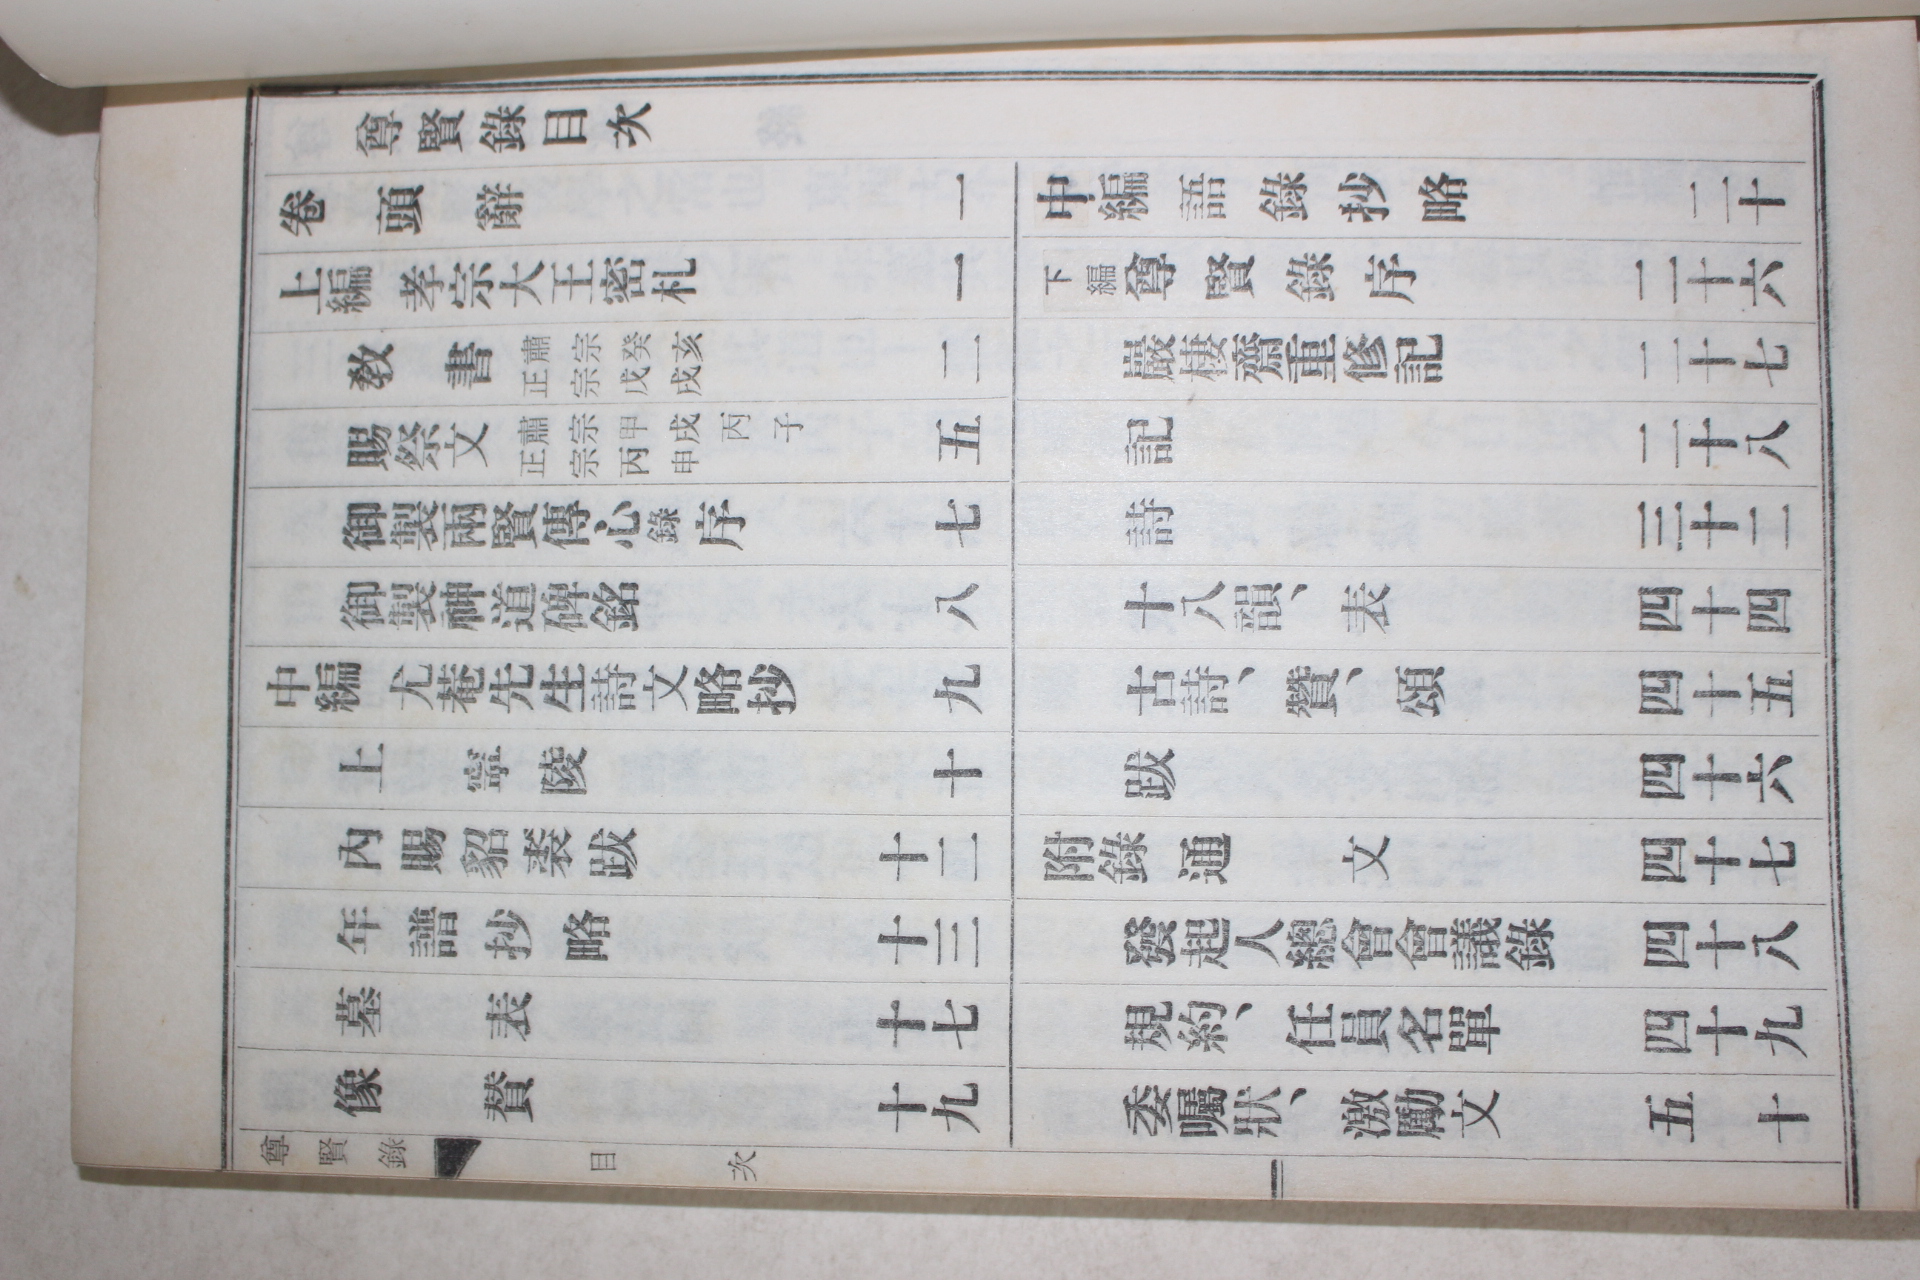 尊賢錄目次
卷頭辭 一
上編 孝宗大王密札 一
教書 肅宗癸亥 正宗戊戌 二
賜祭文 肅宗甲戌丙子 正宗丙申 五
御製兩賢傳心錄序 七
御製神道碑銘 八
中編 尤菴先生詩文略抄 九
上寧陵 十
內賜貂裘跋 十二
年譜抄略 十三
墓表 十七
像贊 十九
中編 語錄抄略 二十
下編 尊賢錄序 二十六
巖棲齋重修記 二十七
記 二十八
詩 三十二
十八韻、表 四十四
古詩、贊、頌 四十五
跋 四十六
附錄 通文 四十七
發起人總會會議錄 四十八
規約、任員名單 四十九
委囑狀、激勵文 五十
尊賢錄 目次 一